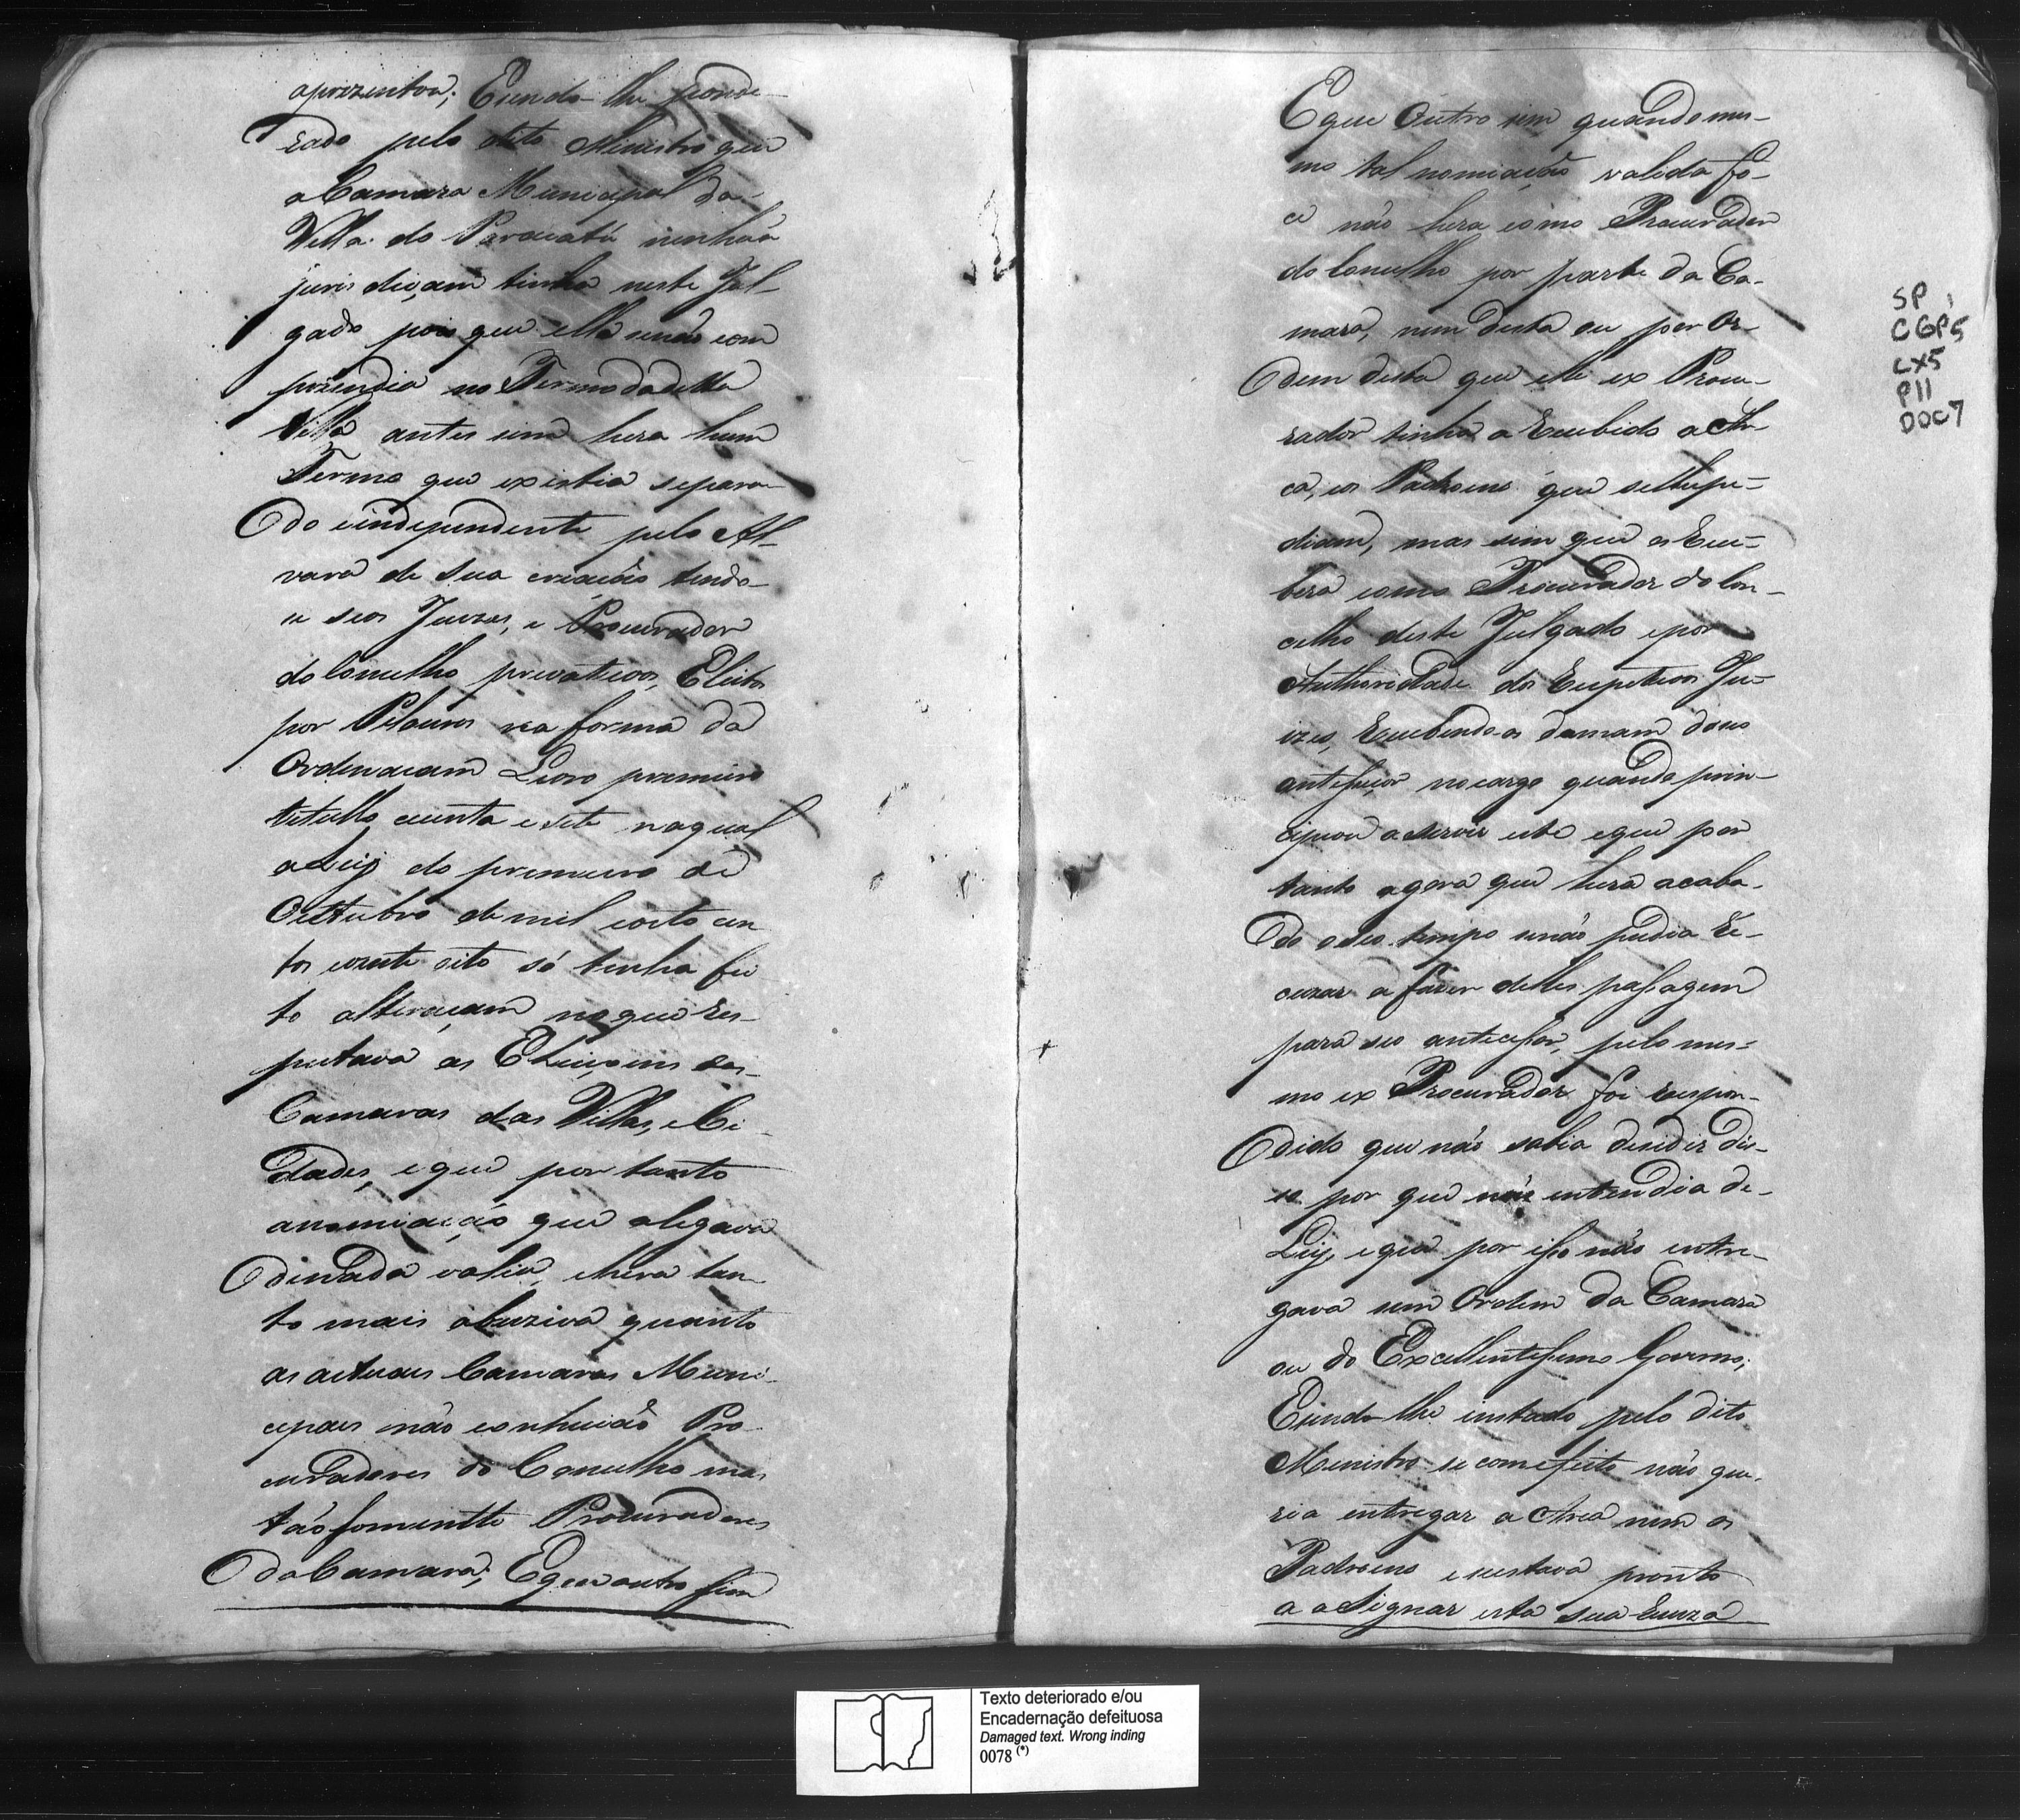 aprezentou; Esendo-lhe ponde-
rado pelo dito Ministro que
a Camara Municipal da
Villa do Paracatú nenhũa
jurisdiçam tinha neste Jul-
gado pois que elle senão com
prendia no Termo dadella
Villa antes sim hera hum
Termo que existia separa-
do eindependente pelo Al-
vará de sua criação tendo-
se seos Juizes, e Procurador
do Conselho privativos, Eleitos
por Pelouros na forma da
Ordenacam Livro primeiro
titullo cecenta esete naqual
a Leij do premeiro de
Outtubro de mil eoito cen
tos evinte oito só tenha fei
to alteraçam noque res-
peitava as Eleiçoens das
Camaras das Villas, e Ci-
dades, eque por tanto
anomiação que alegava
denada valia, ehera tan
to mais abuziva quanto
as actuaes Camaras Muni-
cipaes não conheciáo Pro-
curadores do Conselho mas
tão somentte Procuradores
da Camara; Eque outro sim
Eque Outro sim quando mes-
mo tal nomiação valida fo-
ce não hera como Procurador
do Conselho por parte da Ca-
mara, nem desta ou por Or-
dem desta que elle ex Procu-
rador tinha a Recebido a Ar-
ca, eos Padroens que selhepe-
diam, mas sim que os Rece-
bera como Procurador do Con-
celho deste Julgado epor
Authoridade dos Respetivos Ju-
izes, Recebendo os damam doseo
antesuçor nocargo quando prin-
cipiou aservir este eque por
tanto agora que hera acaba-
do oseo tempo senão pudia Re-
cuzar a fazer delles passagem
para seo antecessor, pelo mes-
mo ex Procurador foi respon-
dido que não sabia desidir dis-
so por que não entendia de-
Leij, eque por isso não entre-
gava sem Ordem da Camara
ou do Excellentissimo Governo;
Esendo-lhe instado pelo dito
Ministro se comefeito não que-
ria entregar a Arca nem os
Padroens eseestava pronto
a aSignar esta sua Recuza
SP
CGP5
CX5
P11
DOC7
Texto deteriorado e/ou
Encadernação defeituosa
Damaged text. Wrong inding
0078 (*)